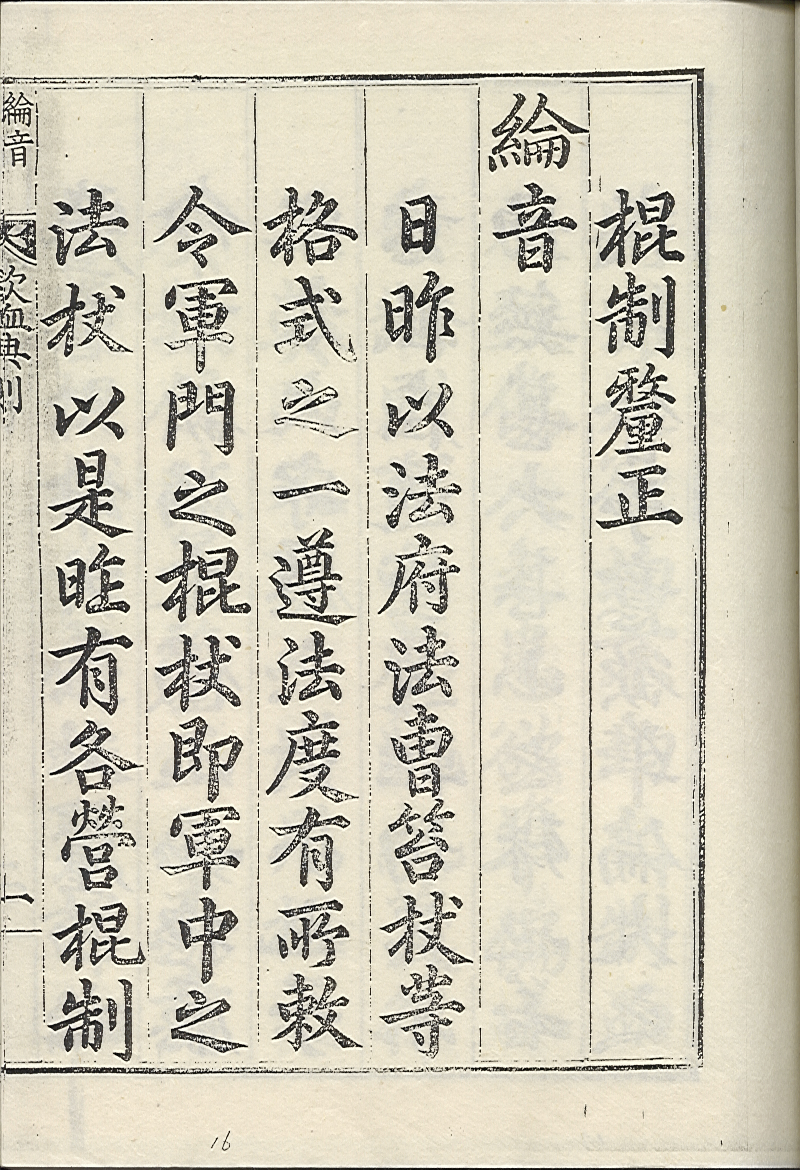 棍制釐正
綸音
日昨以法府法曹笞杖等
格式之一遵法度有所敕
令軍門之棍杖即軍中之
法杖以是昨有各營棍制
綸音 欽恤典則 一
16